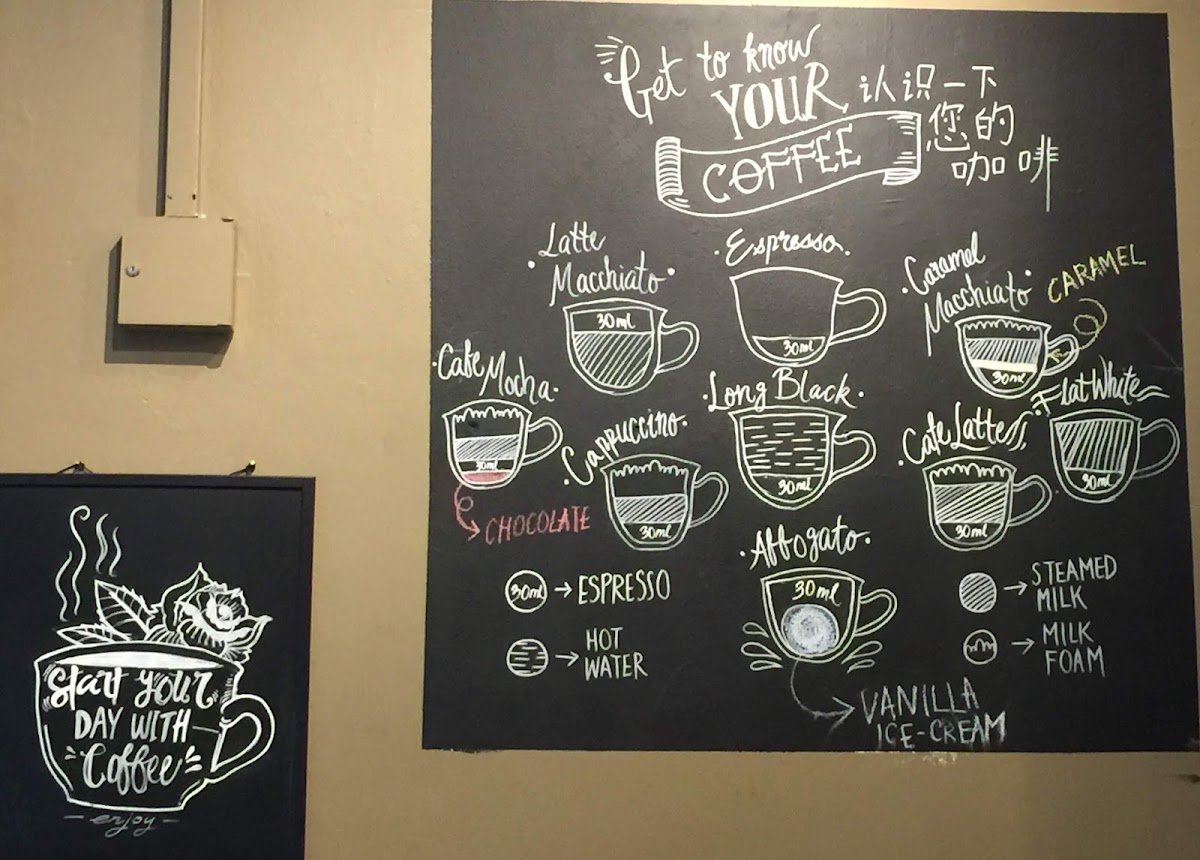 Get to know
YOUR
COFFEE
认识一下
您的
咖啡
Latte
Macchiato
30ml
Espresso
30ml
Caramel
Macchiato
CARAMEL
30ml
Cafe Mocha
30ml
CHOCOLATE
Cappuccino
30ml
Long Black
30ml
Cafe Latte
30ml
Flat White
30ml
Affogato
30ml
VANILLA
ICE-CREAM
30ml → ESPRESSO
→ HOT
WATER
→ STEAMED
MILK
→ MILK
FOAM
Start your
DAY WITH
Coffee
- enjoy -